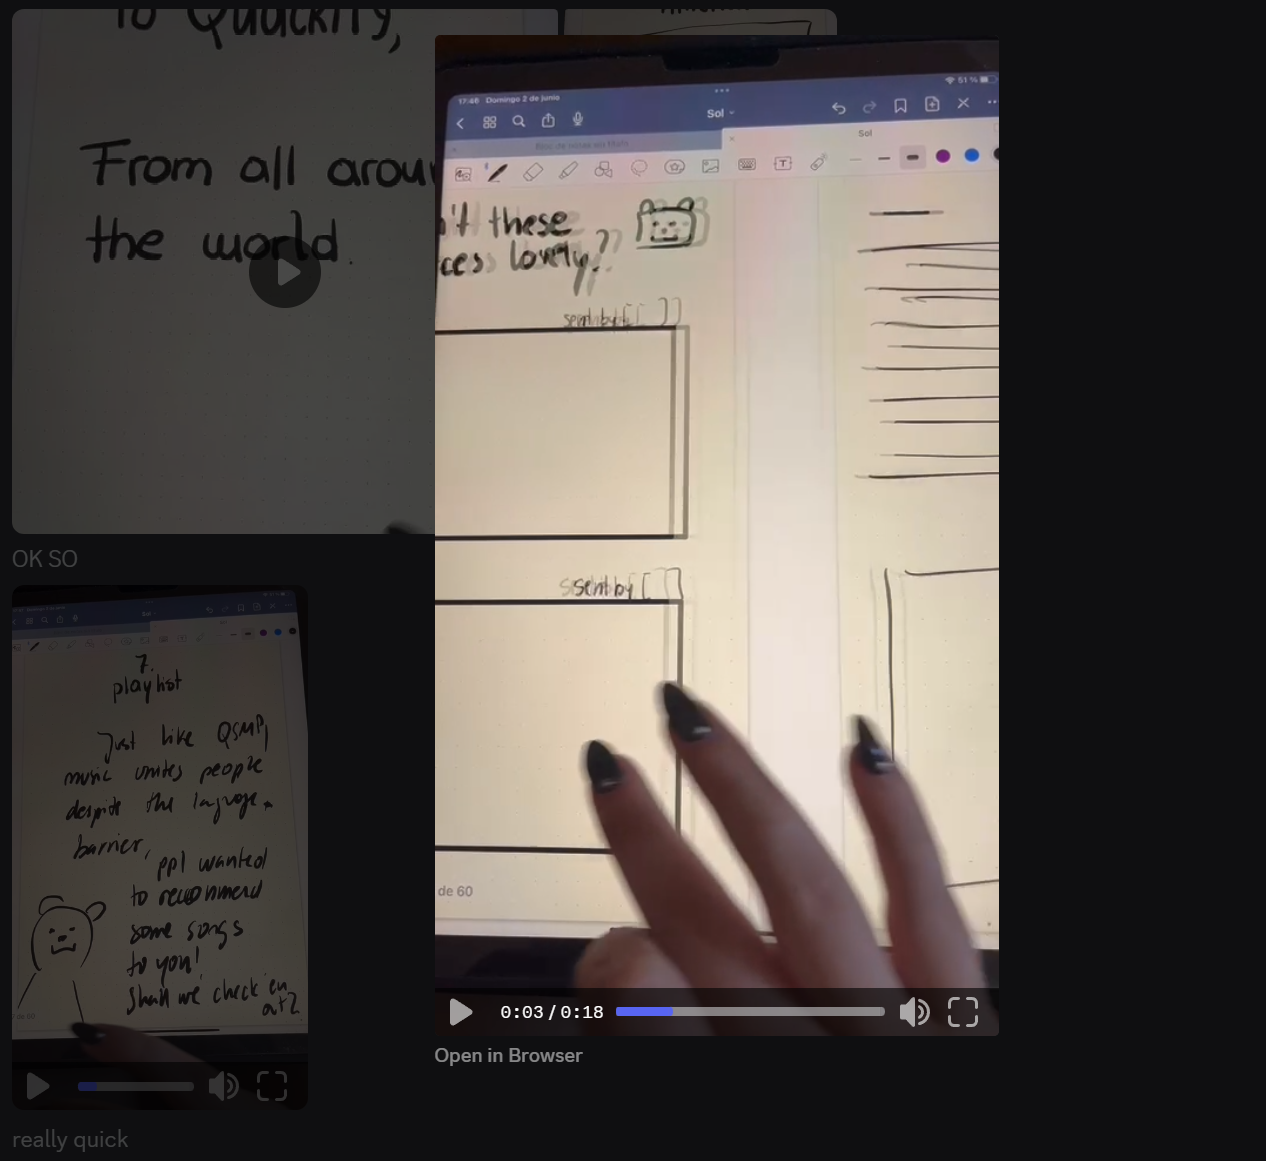 To Quackity,
From all arou
the world.
OK SO
7.
playlist
Just like QSMP,
music unites people
despite the
barrier,
ppl wanted
to recommend
some songs
to you!
Shall we check 'em
out?
de 60
really quick
17:48 Domingo 2 de junio
51 %
Sol
Sol
't these
ces lovely?
sent by [ ]
sent by [ ]
de 60
0:03 / 0:18
Open in Browser